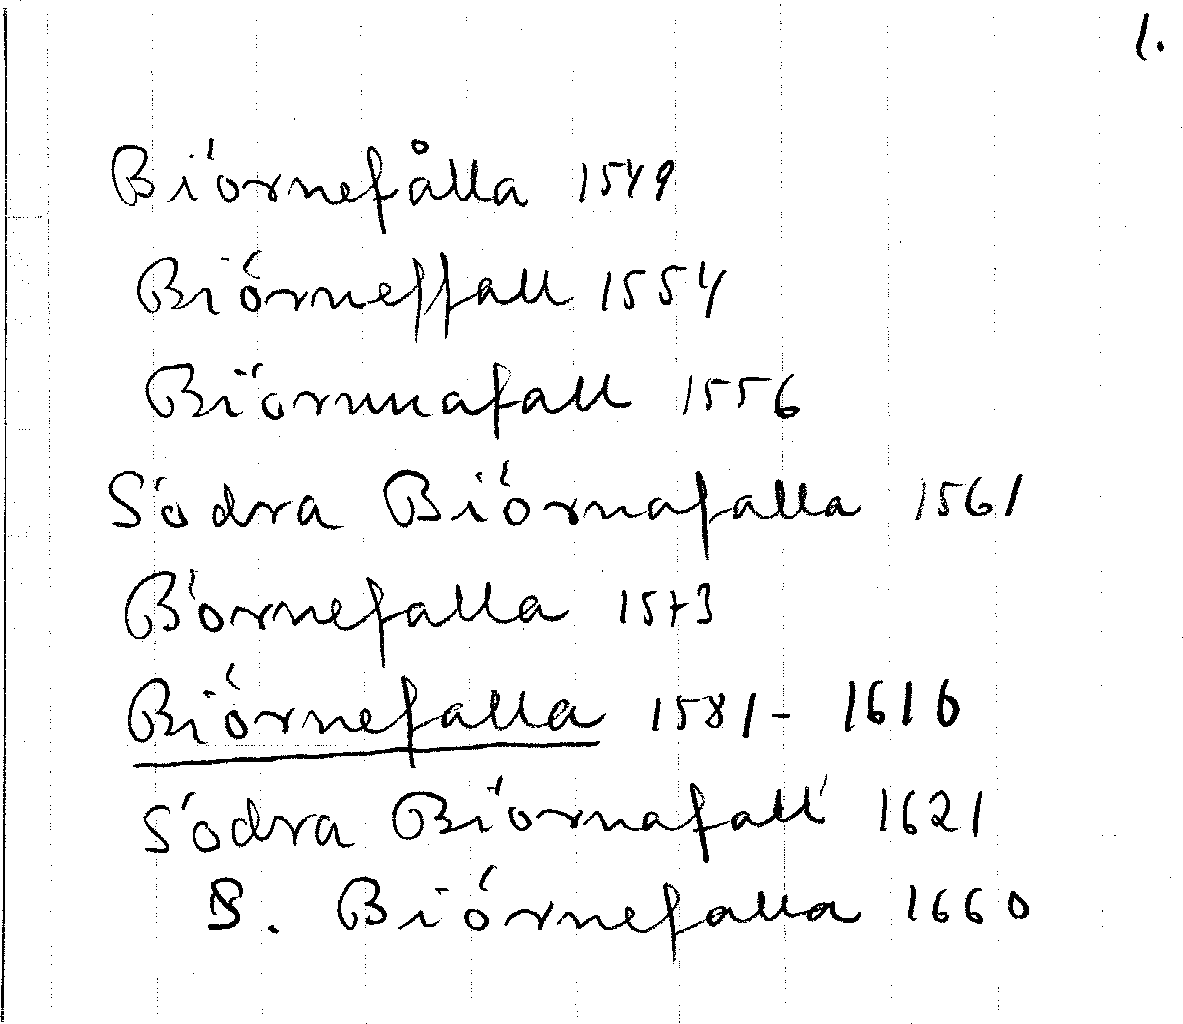 1.
Biörnefålla 1549
Biörneffall 1554
Biörnnafall 1556
Södra Biörnafalla 1561
Börnefalla 1573
Biörnefalla 1581 - 1616
Södra Biörnafall 1621
S. Biörnefalla 1660